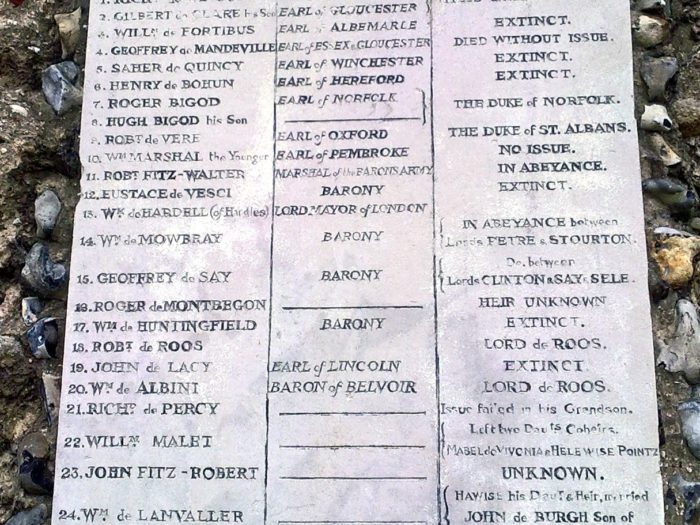 2. GILBERT de CLARE his Son EARL of GLOUCESTER EXTINCT.
3. WILLM de FORTIBUS EARL of ALBEMARLE DIED WITHOUT ISSUE.
4. GEOFFREY de MANDEVILLE EARL of ESSEX & GLOUCESTER EXTINCT.
5. SAHER de QUINCY EARL of WINCHESTER EXTINCT.
6. HENRY de BOHUN EARL of HEREFORD
7. ROGER BIGOD EARL of NORFOLK THE DUKE of NORFOLK.
8. HUGH BIGOD his Son
9. ROBT de VERE EARL of OXFORD THE DUKE of ST. ALBANS.
10. WM MARSHAL the Younger EARL of PEMBROKE NO ISSUE.
11. ROBT FITZ-WALTER MARSHAL of the BARONS ARMY IN ABEYANCE.
12. EUSTACE de VESCI BARONY EXTINCT.
13. WM de HARDELL (of Hardles) LORD MAYOR of LONDON
14. WM de MOWBRAY BARONY IN ABEYANCE between
Lords PETRE & STOURTON.
15. GEOFFREY de SAY BARONY Do. between
Lords CLINTON & SAY & SELE.
16. ROGER de MONTBEGON HEIR UNKNOWN
17. WM de HUNTINGFIELD BARONY EXTINCT.
18. ROBT de ROOS LORD de ROOS.
19. JOHN de LACY EARL of LINCOLN EXTINCT.
20. WM de ALBINI BARON of BELVOIR LORD de ROOS.
21. RICHD de PERCY Issue failed in his Grandson.
22. WILLM MALET Left two Daus. Coheirs.
MABEL de VIVONIA & HELEWISE POINTZ
23. JOHN FITZ-ROBERT UNKNOWN.
24. WM de LANVALLER HAWISE his Daur & Heir, married
JOHN de BURGH Son of